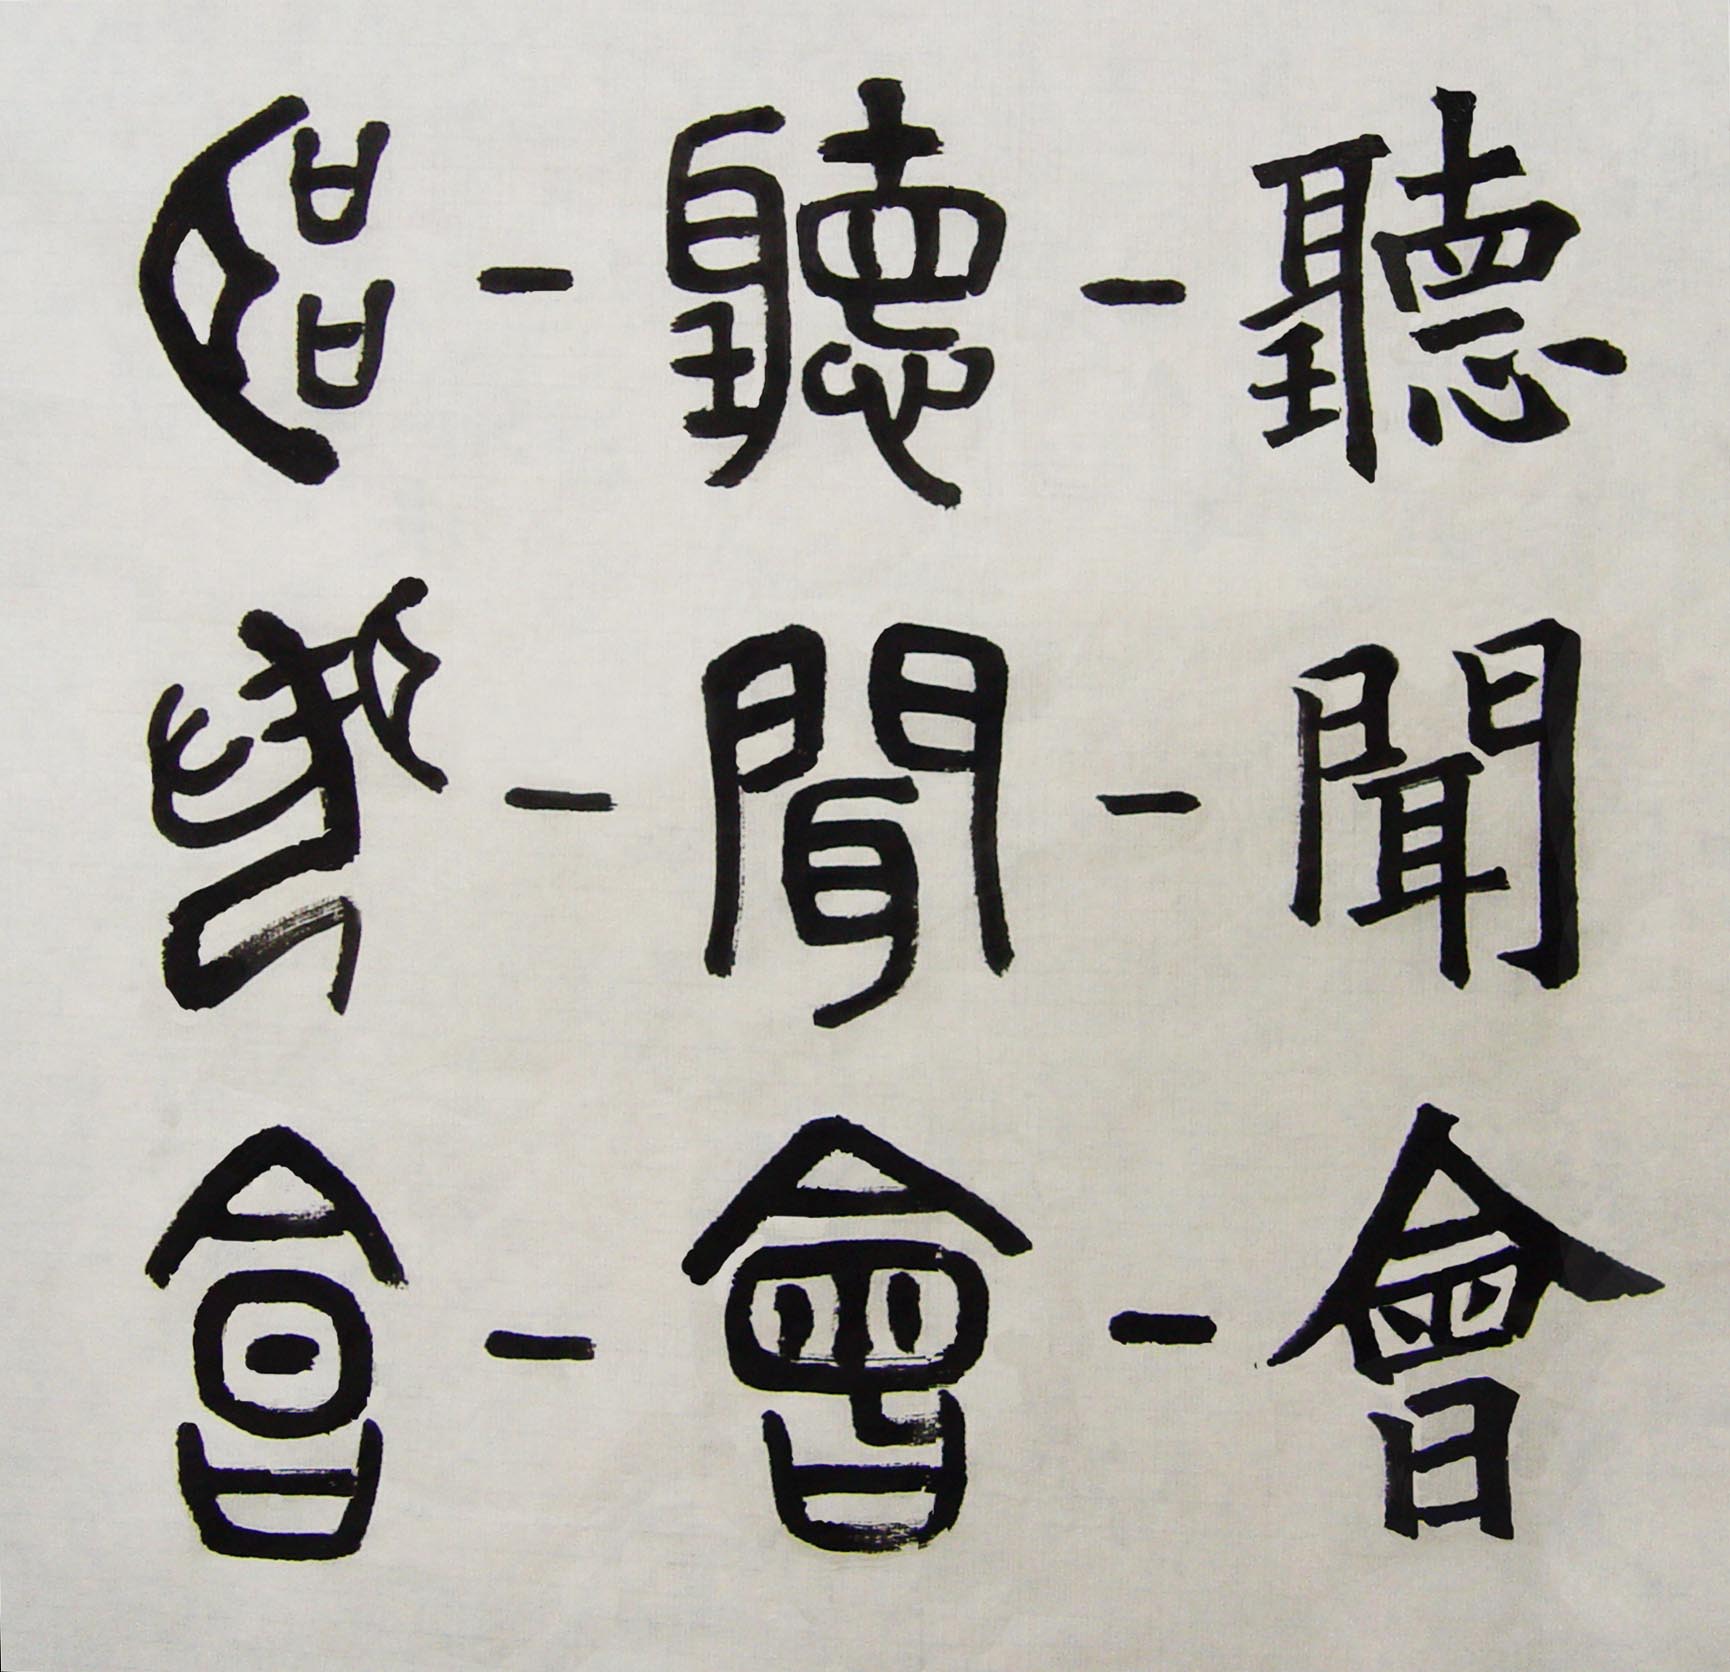 聽 - 聽 - 聽
聞 - 聞 - 聞
會 - 會 - 會